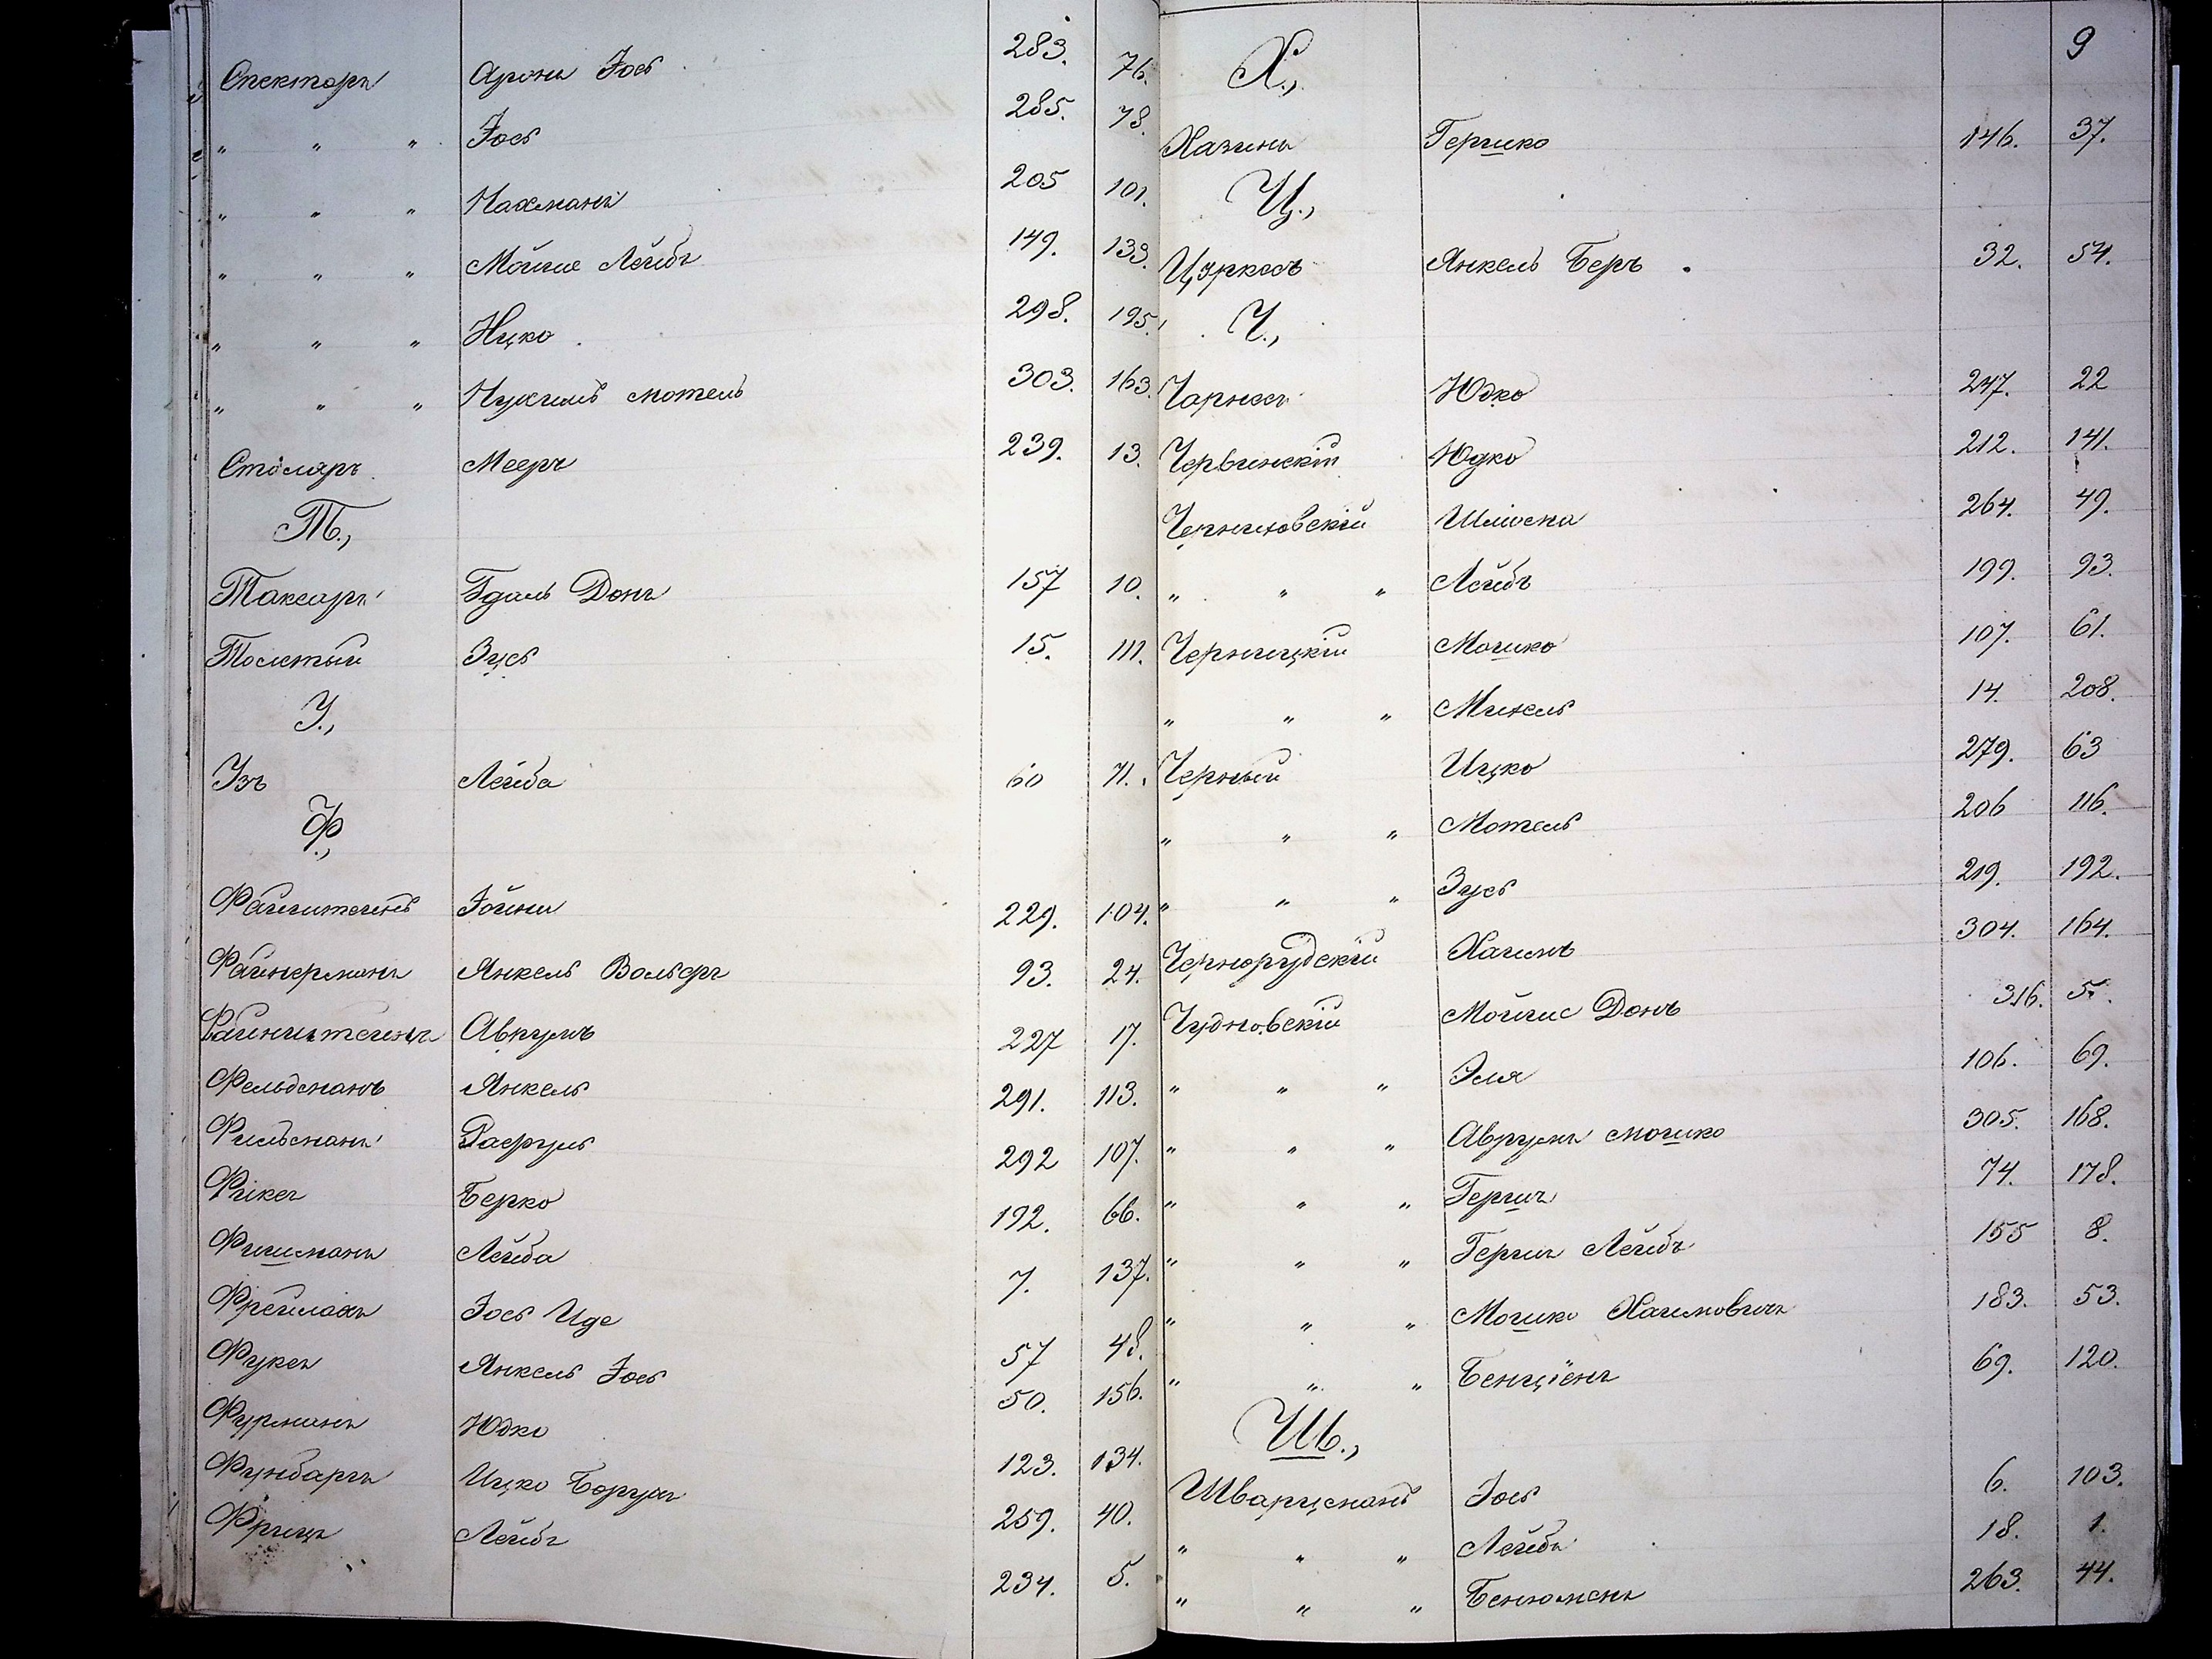 Спекторъ Аронъ Іось 283. 76.
" " " Іось 285. 78.
" " " Нахманъ 205 101.
" " " Мойше Лейбъ 149. 133.
" " " Ицко 298. 195.
" " " Нухимъ мотель 303. 163.
Столяръ Мееръ 239. 13.
Т.,
Таксаръ Гдаль Донъ 157 10.
Толстый Зусь 15. 111.
У.,
Узъ Лейба 60 71.
Ф.,
Файнштейнъ Іойны 229. 104.
Файнерманъ Янкель Вольфъ 93. 24.
Файнштейнъ Аврумъ 227 17.
Фельдманъ Янкель 291. 113.
Фильманъ Расруль 292 107.
Фиксъ Берко 192. 66.
Фишманъ Лейба 7. 137.
Фрейлахъ Іось Иде 57 48.
Фуксъ Янкель Іось 50. 156.
Фурманъ Юдко 123. 134.
Фунбаргъ Ицко Борухъ 259. 40.
Фрицъ Лейбъ 234. 5.
9
Х.,
Хазинъ Гершко 146. 37.
Ц.,
Цэркесъ Янкель Беръ 32. 54.
Ч.,
Чарнесъ Юдко 247. 22
Червинскій Юдко 212. 141.
Черниховскій Шлиомка 264. 49.
" " " Лейбъ 199. 93.
Черницкій Мошко 107. 61.
" " " Михель 14. 208.
Черный Ицко 279. 63
" " " Мотель 206 116.
" " " Зусь 219. 192.
Чернорудскій Хаимъ 304. 164.
Чудновскій Мойшe Донъ 316. 5.
" " " Эля 106. 69.
" " " Аврумъ мошко 305. 168.
" " " Гершъ 74. 178.
" " " Гершъ Лейбъ 155 8.
" " " Мошко Хаимовичъ 183. 53.
" " " Бенціенъ 69. 120.
Ш.,
Шварцманъ Іось 6. 103.
" " " Лейбъ 18. 1.
" " " Бенюменъ 263. 44.